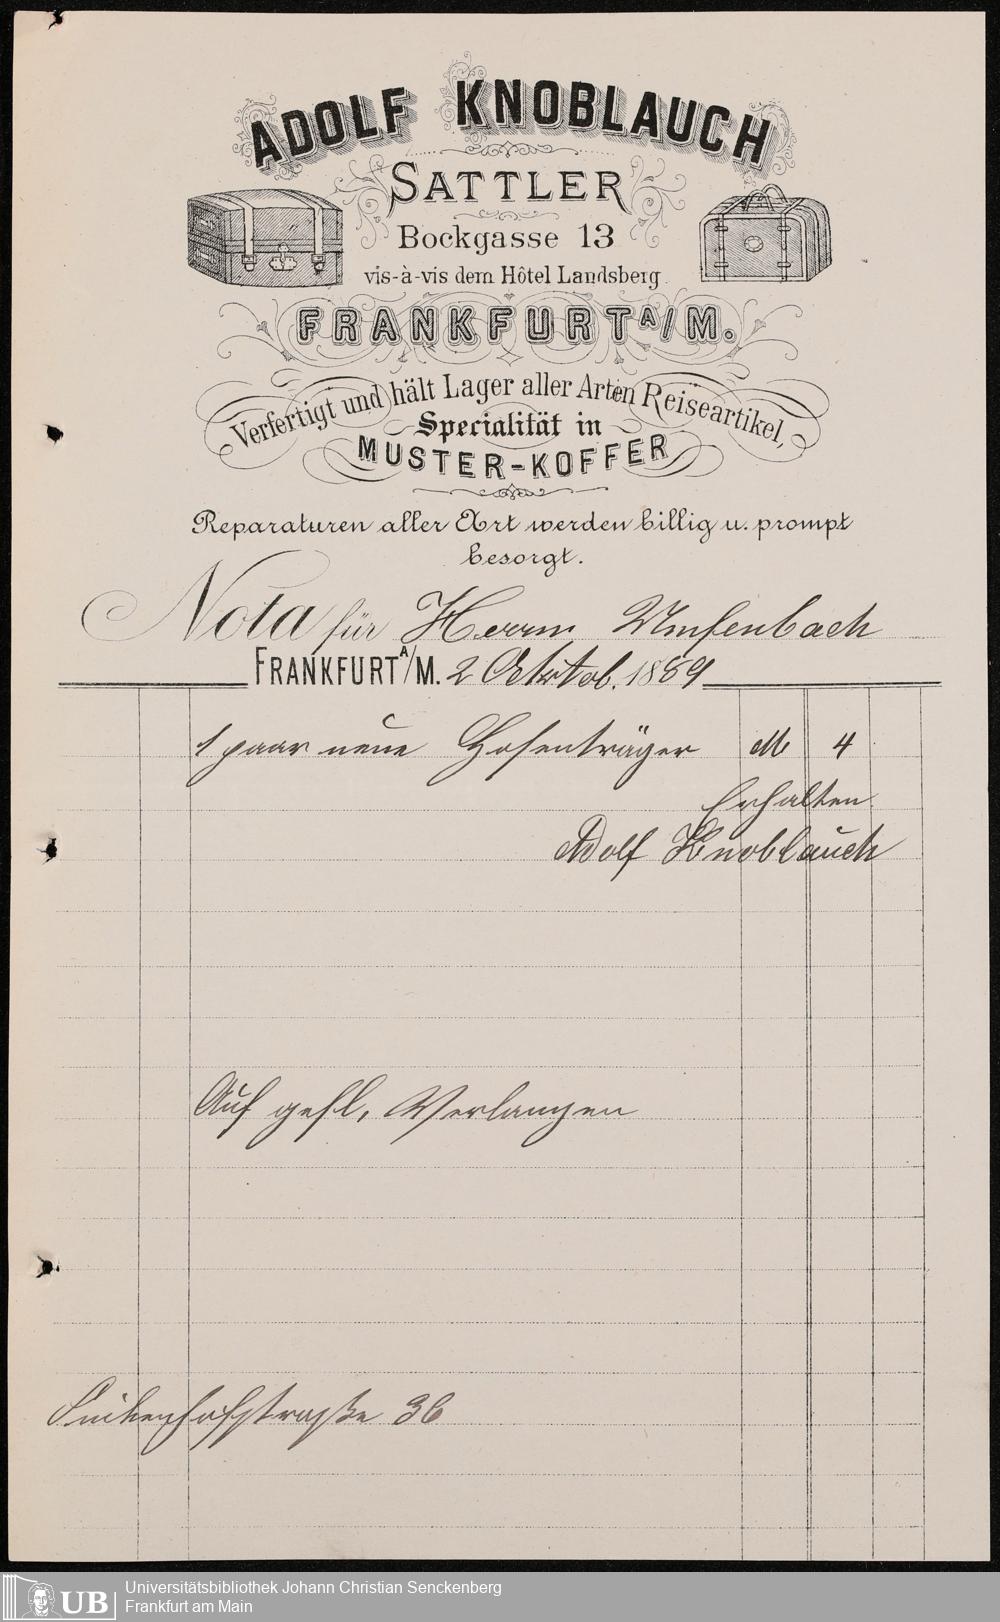 ADOLF KNOBLAUCH
SATTLER
Bockgasse 13
vis-à-vis dem Hôtel Landsberg
FRANKFURT A/M.
Verfertigt und hält Lager aller Arten Reiseartikel,
Specialität in
MUSTER-KOFFER
Reparaturen aller Art werden billig u. prompt
besorgt.
Nota für Herrn
FRANKFURT A/M. 2 Octob. 1889
1 paar neue Hosenträger M 4
Erhalten
Adolf Knoblauch
Auf gefl. Verlangen
36
UB Universitätsbibliothek Johann Christian Senckenberg
Frankfurt am Main